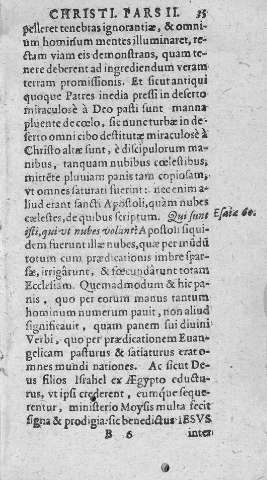 CHRISTI. PARS II. 35
pelleret tenebras ignorantiæ, & omni-
um hominum mentes illuminaret, re-
ctam viam eis demonstrans, quam te-
nere deberent ad ingrediendum veram
terram promissionis. Et sicut antiqui
quoque Patres inedia pressi in deserto
miraculosè à Deo pasti sunt manna
pluente de cœlo, sic nunc turbæ in de-
serto omni cibo destitutæ miraculosè à
Christo altæ sunt, è discipulorum ma-
nibus, tanquam nubibus cœlestibus,
mittēte pluuiam panis tam copiosam,
vt omnes saturati fuerint: nec enim a-
liud erant sancti Apostoli, quàm nubes
cælestes, de quibus scriptum. Qui sunt
isti, qui vt nubes volant? Apostoli siqui-
Esaiæ 60.
dem fuerunt illæ nubes, quæ per mūdū
totum cum prædicationis imbre spar-
sæ, irrigârunt, & fœcundârunt totam
Ecclesiam. Quemadmodum & hic pa-
nis, quo per eorum manus tantum
hominum numerum pauit, non aliud
significauit, quam panem sui diuini
Verbi, quo per prædicationem Euan-
gelicam pasturus & satiaturus erat o-
mnes mundi nationes. Ac sicut De-
us filios Israhel ex Ægypto eductu-
rus, vt ipsi crederent, eumque seque-
rentur, ministerio Moysis multa fecit
signa & prodigia: sic benedictus IESVS
B 6 inter